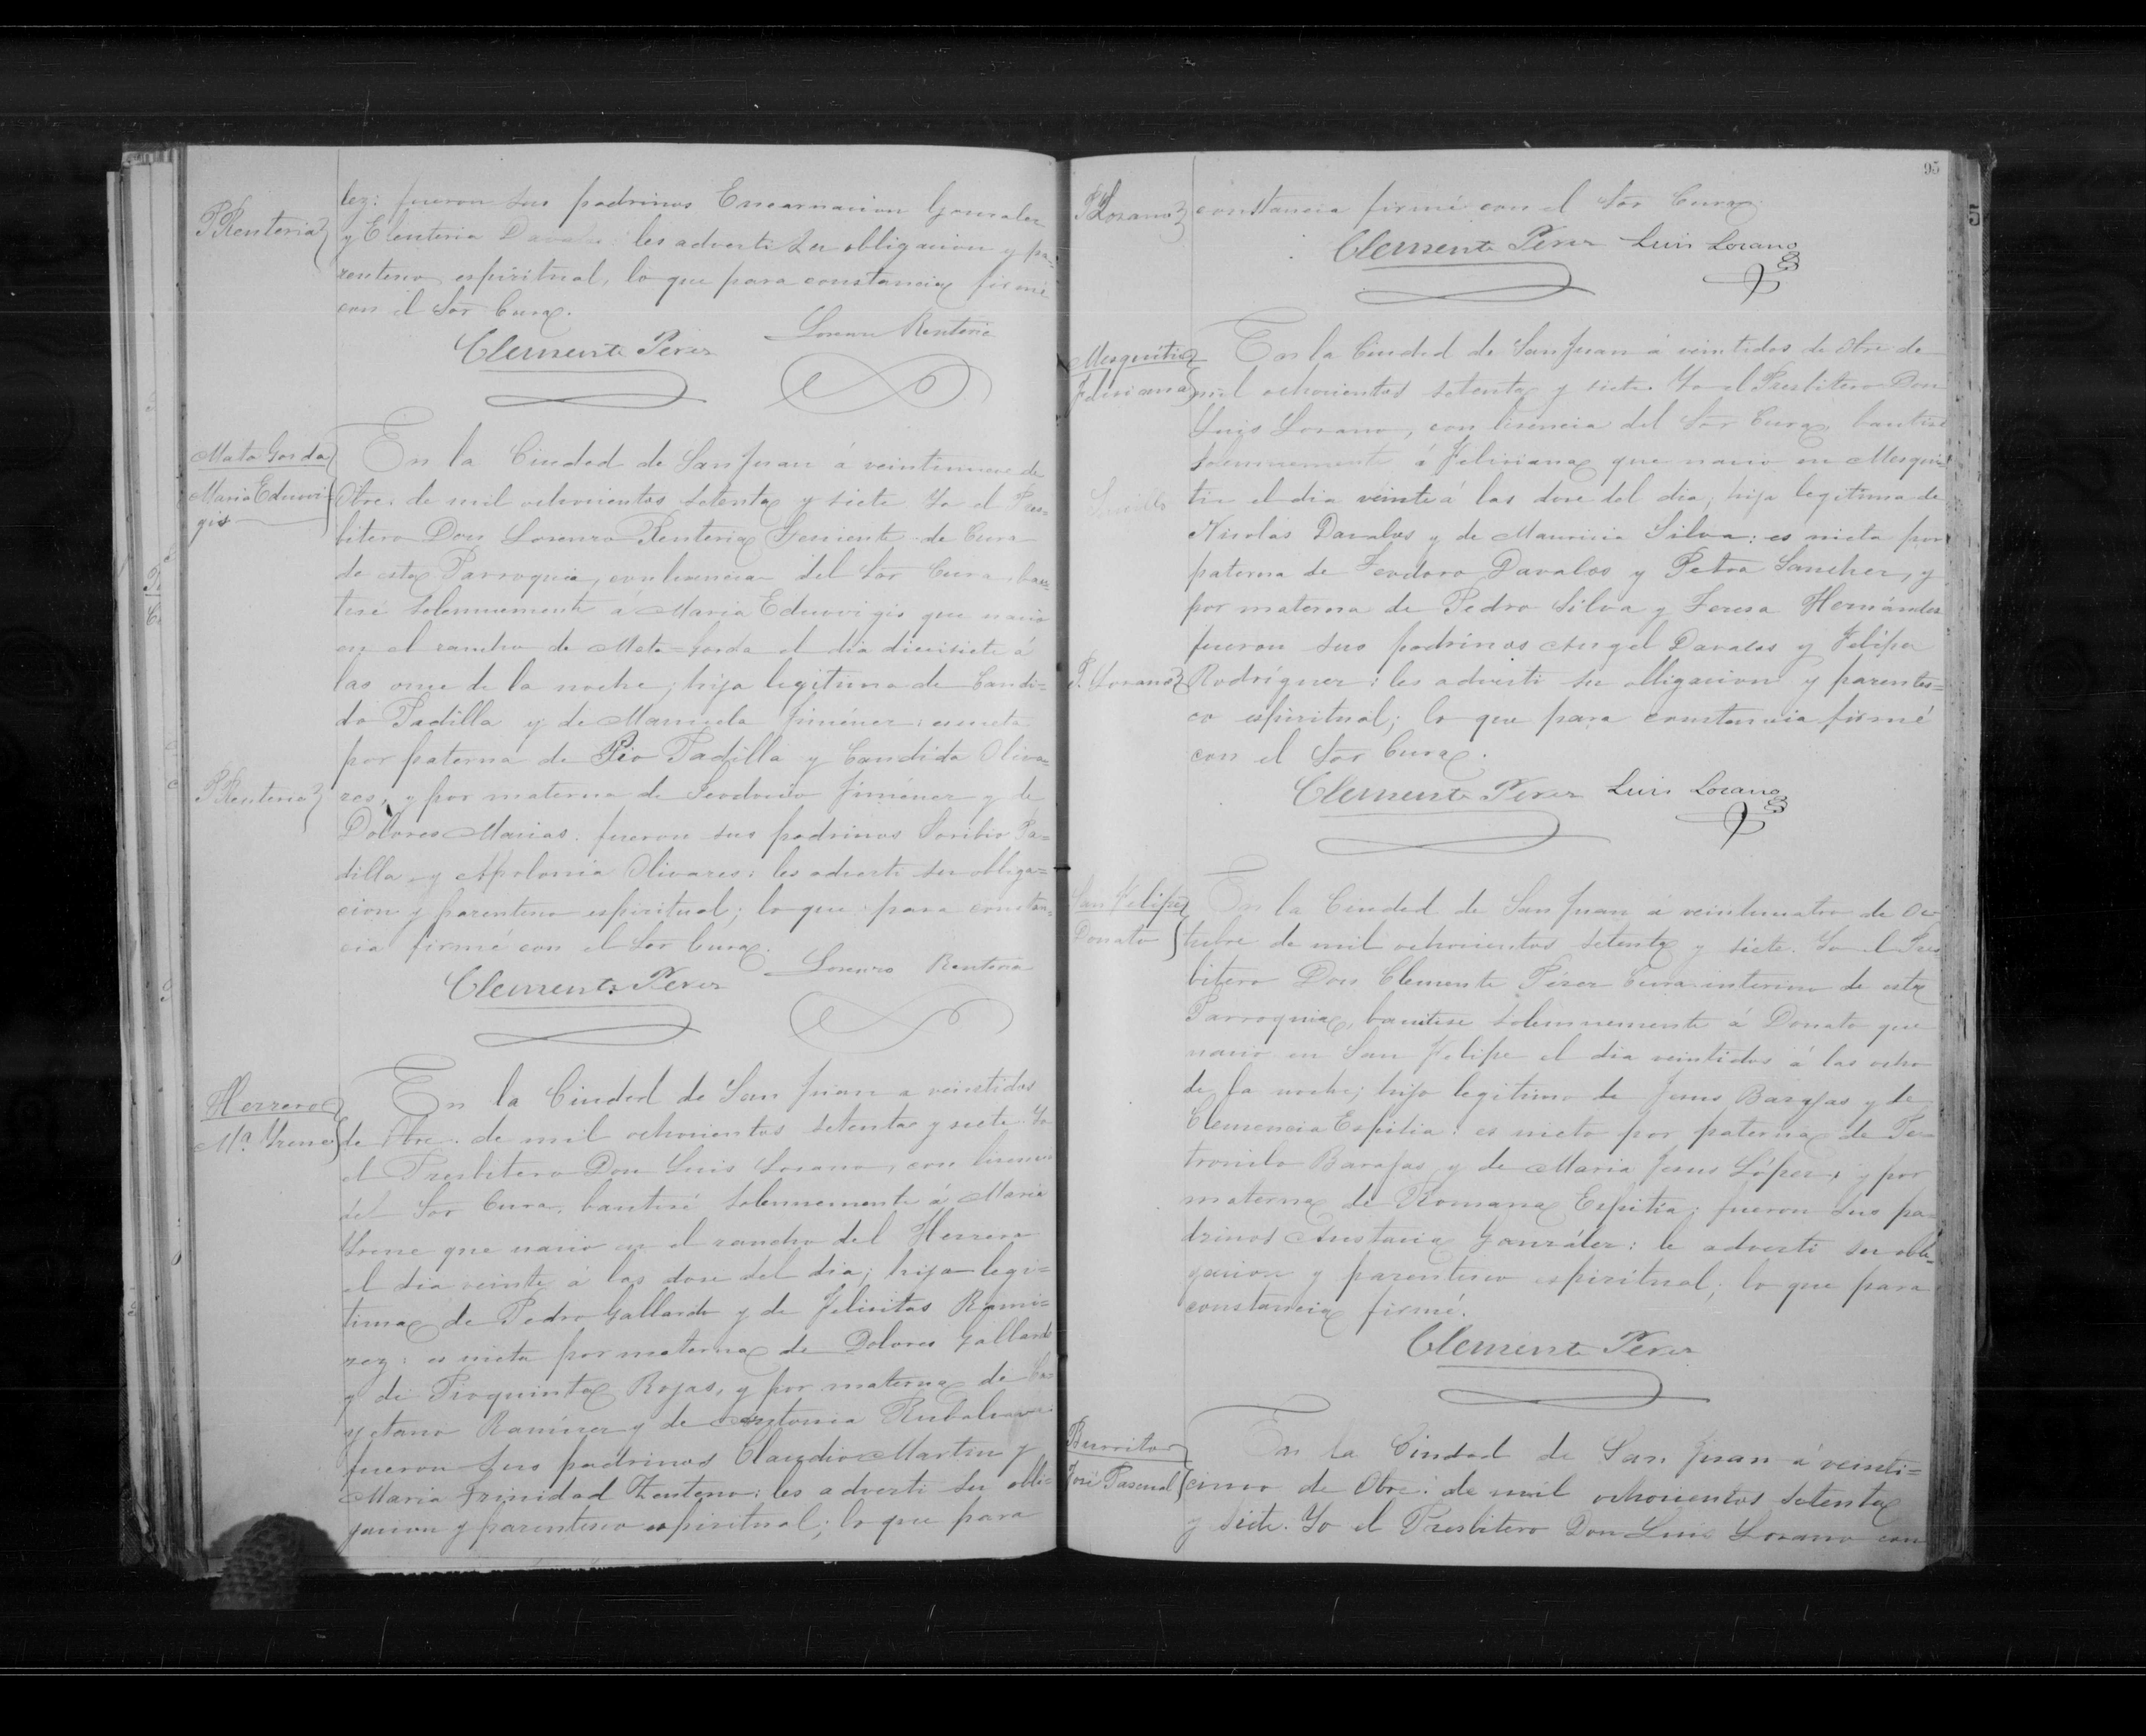 P Renteria
lez: fueron sus padrinos Encarnacion Gonzalez
y Eleuteria Davalos: les advertí su obligacion y pa-
rentesco espiritual, lo que para constancia firmé
con el Sor Cura.
Clemente Perez Lorenzo Renteria
Mata Gorda
Maria Eduvi-
gis
En la Ciudad de San Juan á veintinueve de
Obre. de mil ochocientos setenta y siete Yo el Pres-
bitero Don Lorenzo Renteria Teniente de Cura
de esta Parroquia, con licencia del Sor Cura, bau-
ticé solemnemente á Maria Eduvigis que nació
en el rancho de Mata-Gorda el dia diecisiete á
las once de la noche; hija legitima de Candi-
do Padilla y de Manuela Jiménez: es nieta
por paterna de Pio Padilla y Candida Oliva-
P Renteria
res, y por materna de Teodocio Jiménez y de
Dolores Macias. fueron sus padrinos Toribio Pa-
dilla y Apolonia Olivares: les advertí su obliga-
cion y parentesco espiritual; lo que para constan-
cia firmé con el Sor Cura.
Clemente Perez Lorenzo Renteria
Herrero
Ma. Yrene
En la Ciudad de San Juan a veintidos
de Obre. de mil ochocientos setenta y siete. Yo
el Presbitero Don Luis Lozano, con licencia
del Sor Cura, bauticé solemnemente á Maria
Yrene que nació en el rancho del Herrero
el dia veinte á las doce del dia; hija legi-
tima de Pedro Gallardo y de Felicitas Rami-
rez: es nieta por materna de Dolores Gallardo
y de Pioquinta Rojas, y por materna de Ca-
yetano Ramírez y de Antonia Rubalcava
fueron sus padrinos Claudio Martin y
Maria Trinidad Zenteno: les advertí su obli-
gacion y parentesco espiritual; lo que para
95
5
P Lozano
constancia firmé con el Sor Cura.
Clemente Perez Luis Lozano
Mesquitic
Feliciana
En la Ciudad de San Juan á veintidos de Obre de
mil ochocientos setenta y siete. Yo el Presbitero Don
Luis Lozano, con licencia del Sor Cura, bauticé
solemnemente á Feliciana que nació en Mesqui-
tic el dia veinte á las doce del dia; hija legitima de
Nicolás Davalos y de Mauricia Silva: es nieta por
paterna de Teodoro Davalos y Petra Sanchez, y
por materna de Pedro Silva y Teresa Hernández
fueron sus padrinos Angel Davalos y Felipa
P. Lozano
Rodríguez: les advertí su obligacion y parentes-
co espiritual; lo que para constancia firmé
con el Sor Cura.
Clemente Perez Luis Lozano
San Felipe
Donato
En la Ciudad de San Juan á veinticuatro de Oc-
tubre de mil ochocientos setenta y siete. Yo el Pres
bitero Don Clemente Pérez Cura interino de esta
Parroquia, bautice solemnemente á Donato que
nació en San Felipe el dia veintidos á las ocho
de la noche; hijo legitimo de Jesus Barajas y de
Clemencia Espitia: es nieto por paterna de Pe-
tronilo Barajas y de Maria Jesus López; y por
materna de Romana Espitia; fueron sus pa-
drinos Anstacia González: le advertí su obli-
gacion y parentesco espiritual; lo que para
constancia firmé.
Clemente Perez
Burrito
José Pascual
En la Ciudad de San Juan á veinti-
cinco de Obre. de mil ochocientos setenta
y siete. Yo el Presbitero Don Luis Lozano con